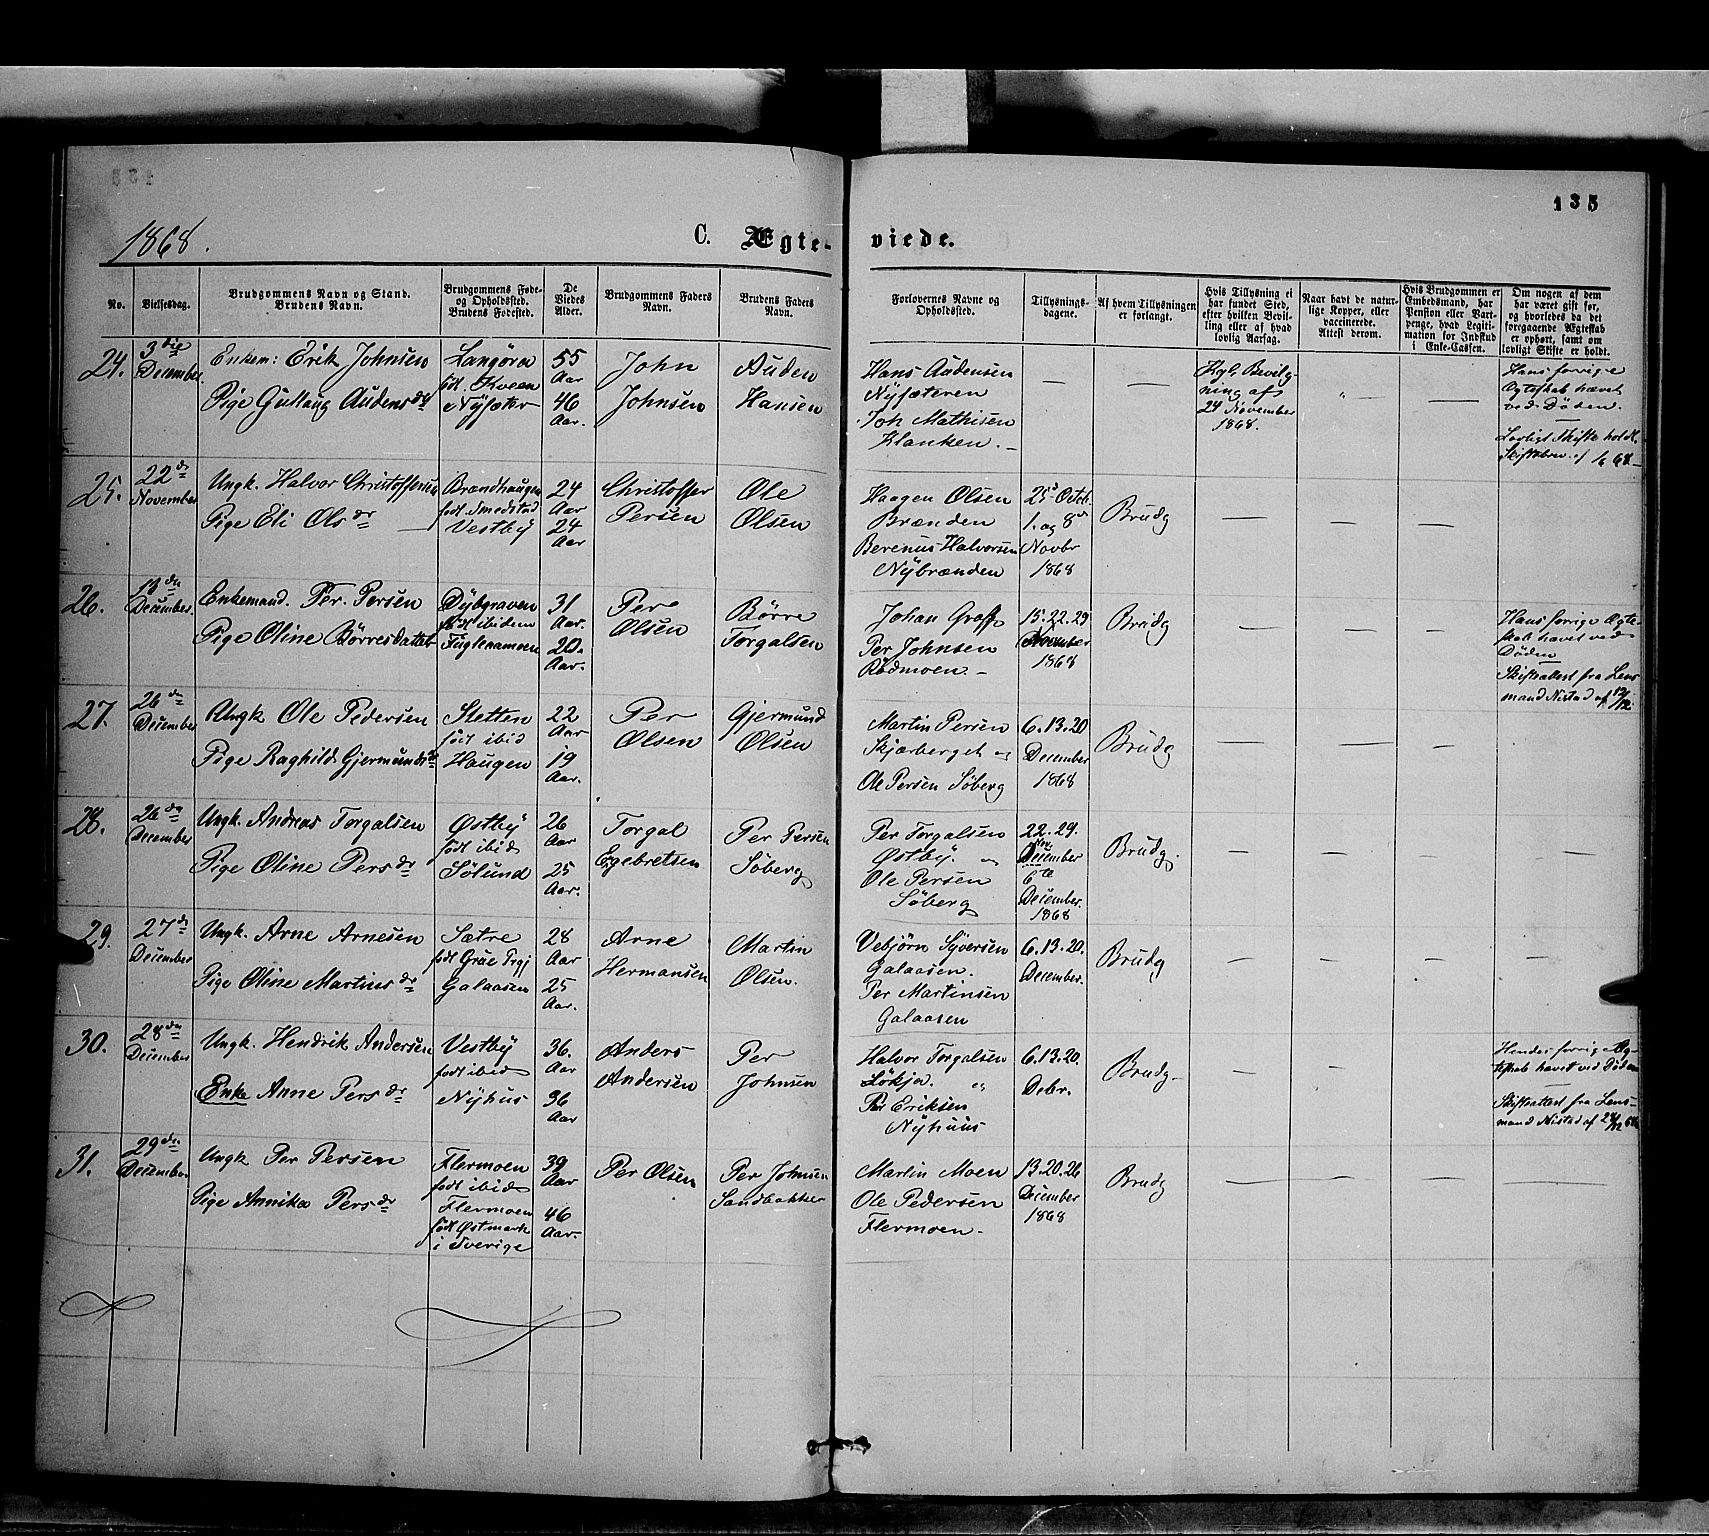 135
1868.
C. Ægteviede.
No.
Vielsesdag.
Brudgommens Navn og Stand.
Brudens Navn.
Brudgommens Føde-
og Opholdssted.
Brudens Fødested.
De
Viedes
Alder.
Brudgommens Faders
Navn.
Brudens Faders
Navn.
Forlovernes Navne og
Opholdssted.
Tillysnings-
dagene.
Af hvem Tillysningen
er forlangt.
Hvis Tillysning ei
har fundet Sted,
efter hvilken Bevil-
ling eller af hvad
lovlig Aarsag.
Naar havt de natur-
lige Kopper, eller
vaccinerede.
Attest derom.
Hvis Brudgommen er
Embedsmand, har
Pension eller Vart-
penge, hvad Legiti-
mation for Indskud
i Enke-Cassen.
Om nogen af dem
har været gift før,
og hvorledes da det
foregaaende Ægteskab
er ophørt, samt om
lovligt Skifte er holdt.
24.
3die
December.
Enkem: Erik Johnsen
Pige Gullaug Audensdr
Langøra
født Kveen
Nysæter
55
Aar
46
Aar.
John
Johnsen
Auden
Hansen
Hans Audensen
Nysæteren
Joh Mathisen
Klanken. -
—
—
Kgl. Bevilg-
ning af
24 November
1868.
" —
—
Hans forrige
Ægteskab hævet
ved Døden.
Lovligt Skifte holdt.
Skiftebrev af
25.
22de
November
Ungk. Halvor Christoffersen
Pige Eli Olsdr —
Brændhaugen
født Smedstad
Vestby
24
Aar
24
Aar
Christoffer
Persen
Ole
Olsen
Haagen Olsen
Brænden
Berenus Halvorsen
Nybrænden
25de Octob.
1. og 8de
Novbr
1868
Brudg
—
—
—
26.
13de
December.
Enkemand. Per Persen
Pige Oline Børresdatter
Dybgraven
født ibidem
Fugleaamoen
31
Aar.
20.
Aar.
Per
Olsen
Børre
Torgalsen
Johan Graff
Per Johnsen
Rødmoen. -
15. 22. 29
November
1868
Brudg
—
—
—
Hans forrige Ægte-
skab hævet ved
Døden
Skifteattest fra Lens-
mand Nistad af 12/12
27.
26de
December
Ungk Ole Pedersen
Pige Raghild Gjermundsdr
Sletten
født ibid
Haugen
22
Aar
19
Aar.
Per
Olsen
Gjermund
Olsen
Martin Persen
Skjærberget og
Ole Persen Søberg
6. 13. 20
December
1868
Brudg
—
—
—
28.
26de
December
Ungk. Andreas Torgalsen
Pige Oline Persdr
Østby
født ibid
Sølund
26
Aar
25
Aar.
Torgal
Egebretsen
Per Persen
Søberg
Per Torgalsen
Østby. og
Ole Persen
Søberg
22. 29.
December
6te
December.
1868
Brudg.
—
—
—
—
29.
27de
December
Ungk. Arne Arnesen
Pige Oline Martinsdr
Sætre
født Grue Prgj
Galaasen
28
Aar
25
Aar.
Arne
Hermansen
Martin
Olsen.
Vebjörn Syversen
Galaasen.
Per Martinsen
Galaasen
6. 13. 20.
December.
Brudg
—
—
—
—
30.
28de
December
Ungk. Hendrik Andersen
Enke Anne Persdr
Vestby
født ibid
Nyhus
36.
Aar
36
Aar
Anders
Andersen
Per
Johnsen
Halvor Torgalsen
Løkja. "
Per Eriksen
Nyhuus
6. 13. 20.
Debr.
Brudg.
—
—
—
Hendes forrige Æg-
teskab hævet ved Døden
Skifteattest fra Lens-
mand Nistad af
31.
29de
December
Ungk Per Persen
Pige Annika Persdr
Flermoen
født ibid
Flermoen
født Østmark
i Sverige
39
Aar
46
Aar.
Per Olsen
Per Johnsen
Sandbakken
Martin Moen
Ole Pedersen
Flermoen.
13. 20. 26
December
1868
Brudg
—
—
—
—